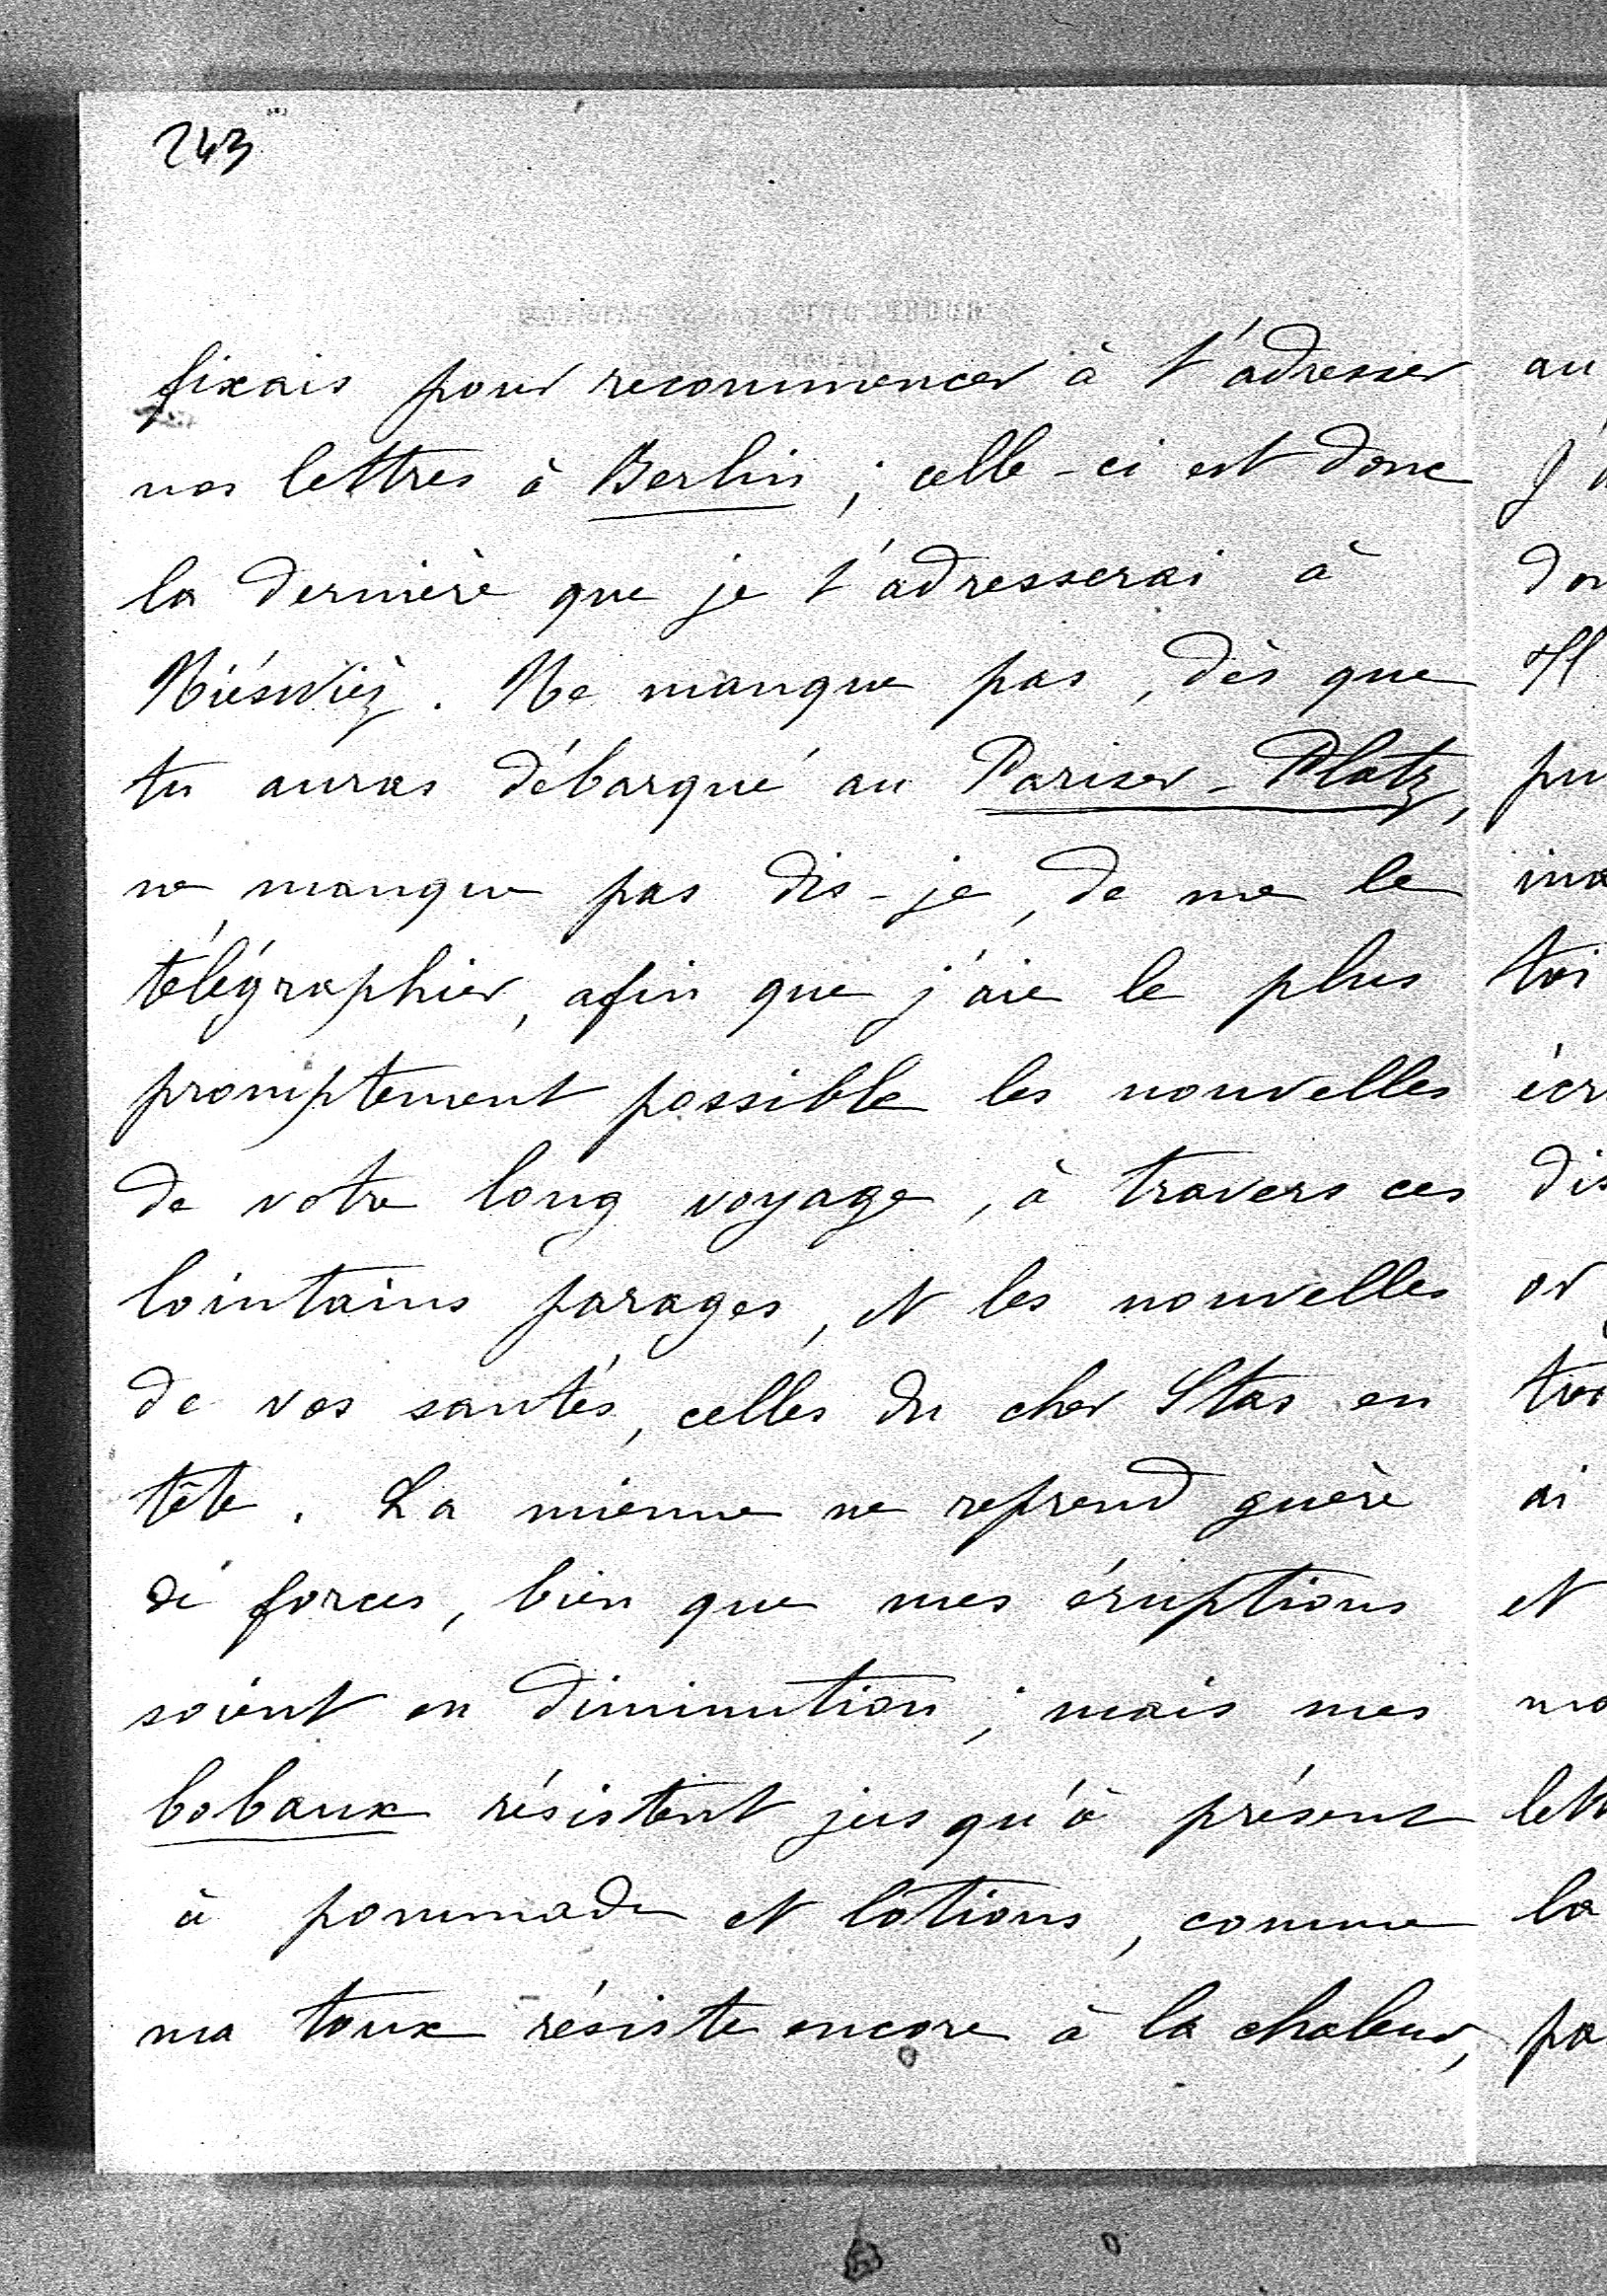 243
fixais pour recommencer à t'adresser
nos lettres à Berlin ; celle-ci est donc
la dernière que je t'adresserai à
Niéswiéz. Ne manque pas, dès que
tu auras débarqué au Pariser-Platz,
ne manque pas dis-je, de me le
télégraphier, afin que j'aie le plus
promptement possible les nouvelles
de votre long voyage, à travers ces
lointains parages, et les nouvelles
de vos santés, celles du cher Stas en
tête. La mienne ne reprend guère
de forces, bien que mes éruptions
soient en diminution ; mais mes
bobaux résistent jusqu'à présent
à pommade et lotions, comme
ma toux résiste encore à la chaleur,